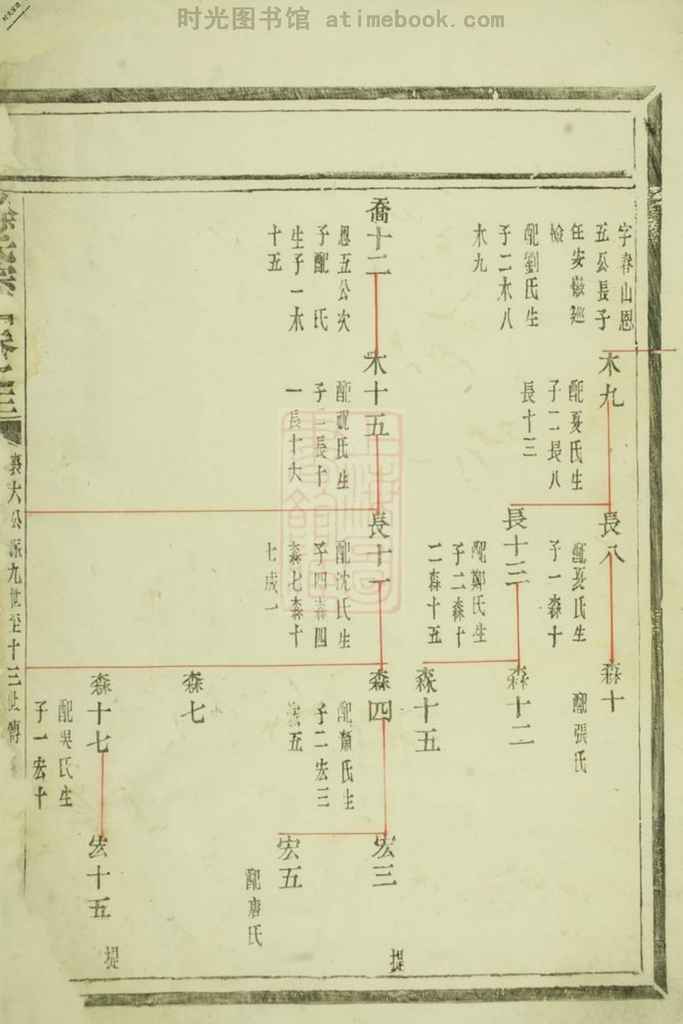 时光图书馆 atimebook.com
字春山恩
五公長子
任安徽廵
檢
配劉氏生
子二木八
木九
喬十二
恩五公次
子配 氏
生子一木
十五
木九
配夏氏生
子二長八
長十三
木十五
子二長十
一長十六
長八
配夏氏生
子一森十
長十三
配鄭氏生
子二森十
二森十五
長十一
配沈氏生
子四森四
森七森十
七成一
森十
配張氏
森十二
森十五
森四
配蕭氏生
子二宏三
宏五
森七
森十七
配吳氏生
子一宏十
宏三
提
宏五
配唐氏
宏十五
提
卷之三
公派九世至十三世傳